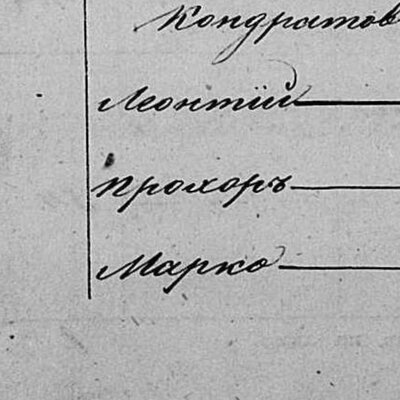 Кондратов
Леонтій
Прохоръ
Марко